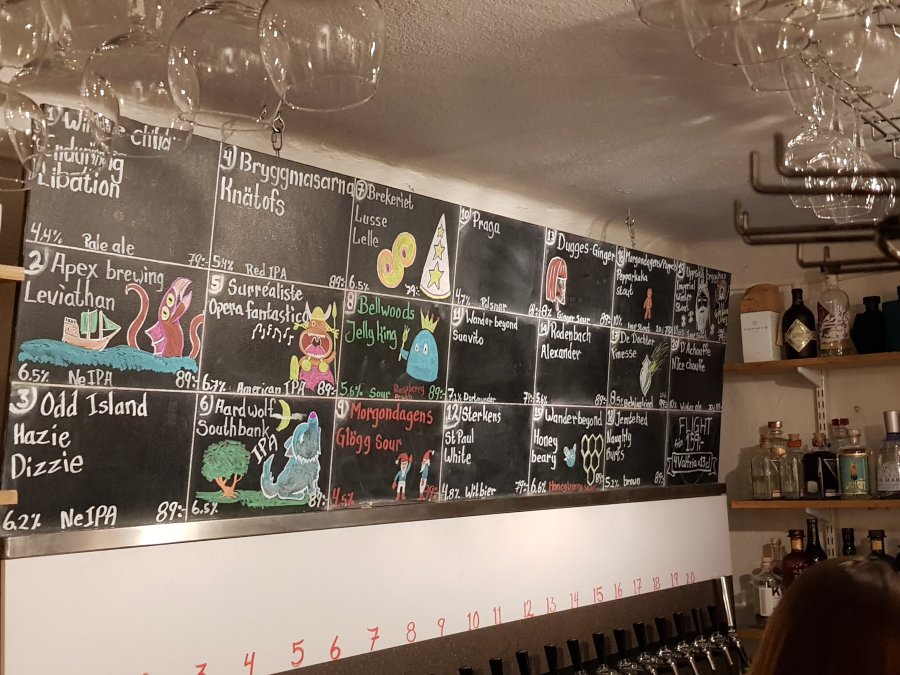 Libation
4.4% Pale ale 79:-
2 Apex brewing
Leviathan
6.5% NeIPA 89:-
3 Odd Island
Hazie
Dizzie
6.2% NeIPA 89:-
4 Bryggmasarna
Knätofs
5.4% Red IPA 89:-
5 Surrealiste
Opera fantastico
6.7% American IPA 89:-
6 Aardwolf
Southbank
IPA
6.5% 89:-
7 Brekeriet
Lusse
Lelle
6.5% 79:-
8 Bellwoods
Jelly King
5.6% Sour Raspberry 89:-
9 Morgondagens
Glögg Sour
4.5%
10 Praga
4.7% Pilsner
11 Wander beyond
Suavito
12 Sterkens
St Paul
White
4.8% Witbier 79:-
13 Dugges-Ginger
Ginger Sour 89:-
14 Rodenbach
Alexander
5.6% 89:-
15 Wander beyond
Honey
beary
6.6%
Pepparkaka
stout
10%
De Dochter
Finesse
Naughty
5.2% brown 89:-
Imperial
Winter
Stout
20 D'Achouffe
N'ice chouffe
10%
FLIGHT
159:-
5 6 7 8 9 10 11 12 13 14 15 16 17 18 19 20